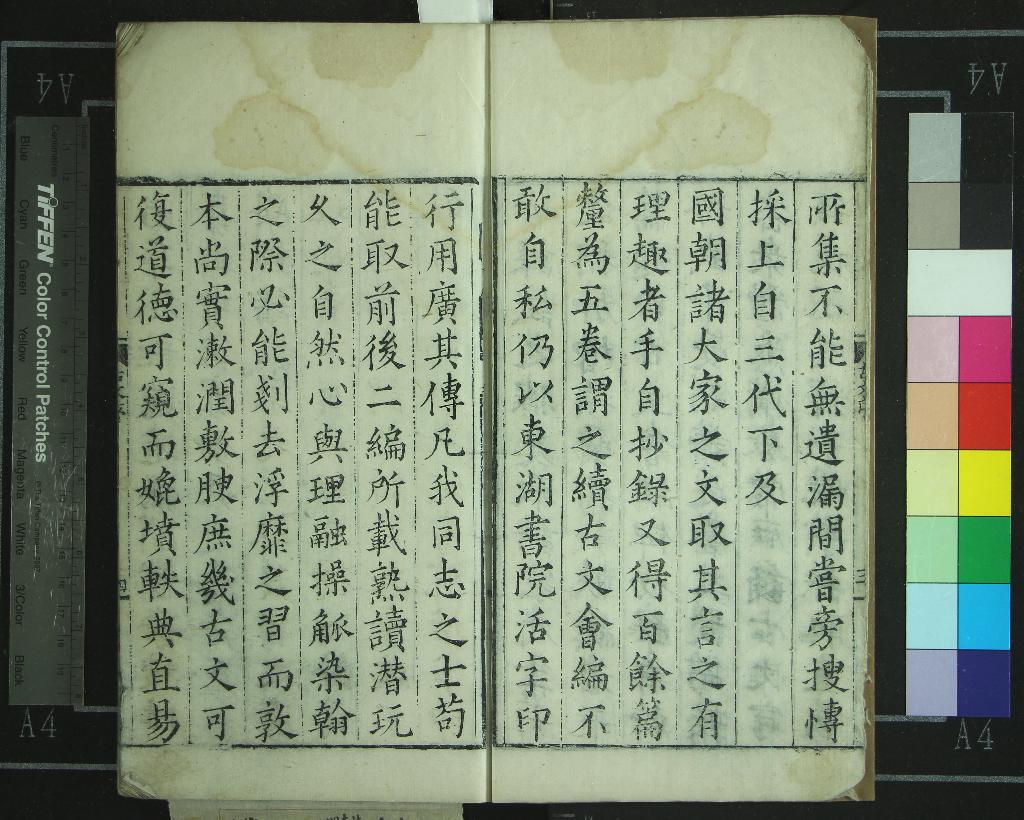 所集不能無遺漏間嘗旁搜博
採上自三代下及
國朝諸大家之文取其言之有
理趣者手自抄錄又得百餘篇
釐為五卷謂之續古文會編不
敢自私仍以東湖書院活字印
行用廣其傳凡我同志之士苟
能取前後二編所載熟讀潛玩
久之自然心與理融操觚染翰
之際必能剗去浮靡之習而敦
本尚實漱潤敷腴庶幾古文可
復道德可窺而媲墳軼典直易
TIFFEN Color Control Patches
Centimetres
Blue
Cyan
Green
Yellow
Red
Magenta
White
3/Color
Black
A4
A4
A4
A4